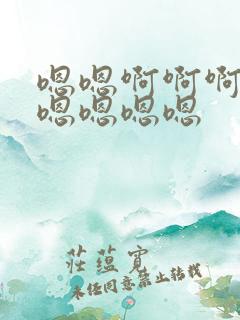 嗯嗯啊啊啊
嗯嗯嗯嗯
莊蕴寬
未经同意禁止转载